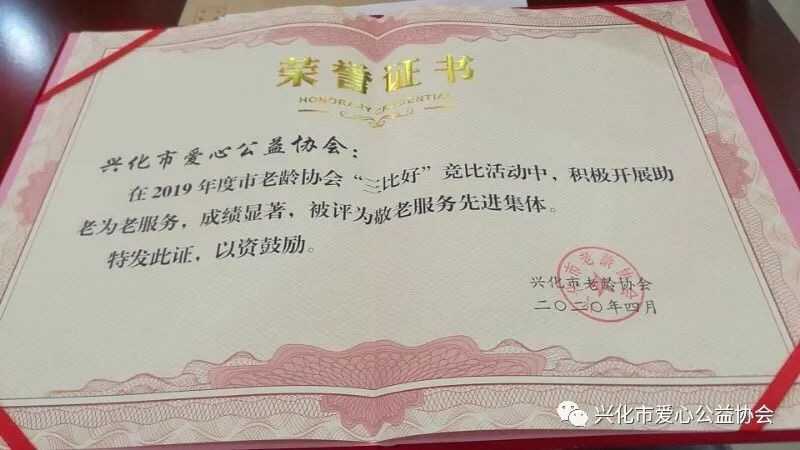 荣誉证书
HONORARY CREDENTIAL
兴化市爱心公益协会：
在2019年度市老龄协会“三比好”竞比活动中，积极开展助
老为老服务，成绩显著，被评为敬老服务先进集体。
特发此证，以资鼓励。
兴化市老龄协会
二〇二〇年四月
兴化市爱心公益协会